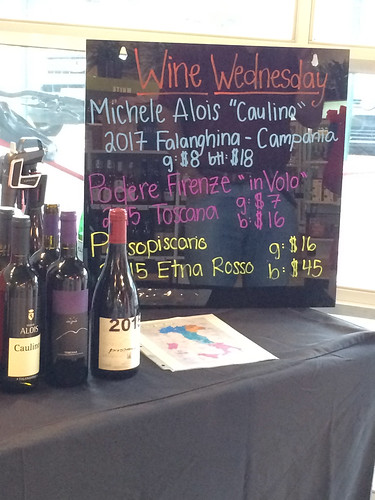 Wine Wednesday
Michele Alois "Caulino"
2017 Falanghina - Campania
g: $8 btl: $18
Podere Firenze "in Volo"
2015 Toscana g: $7
b: $16
Passopisciaro g: $16
2015 Etna Rosso b: $45
ALOIS
Caulino
201